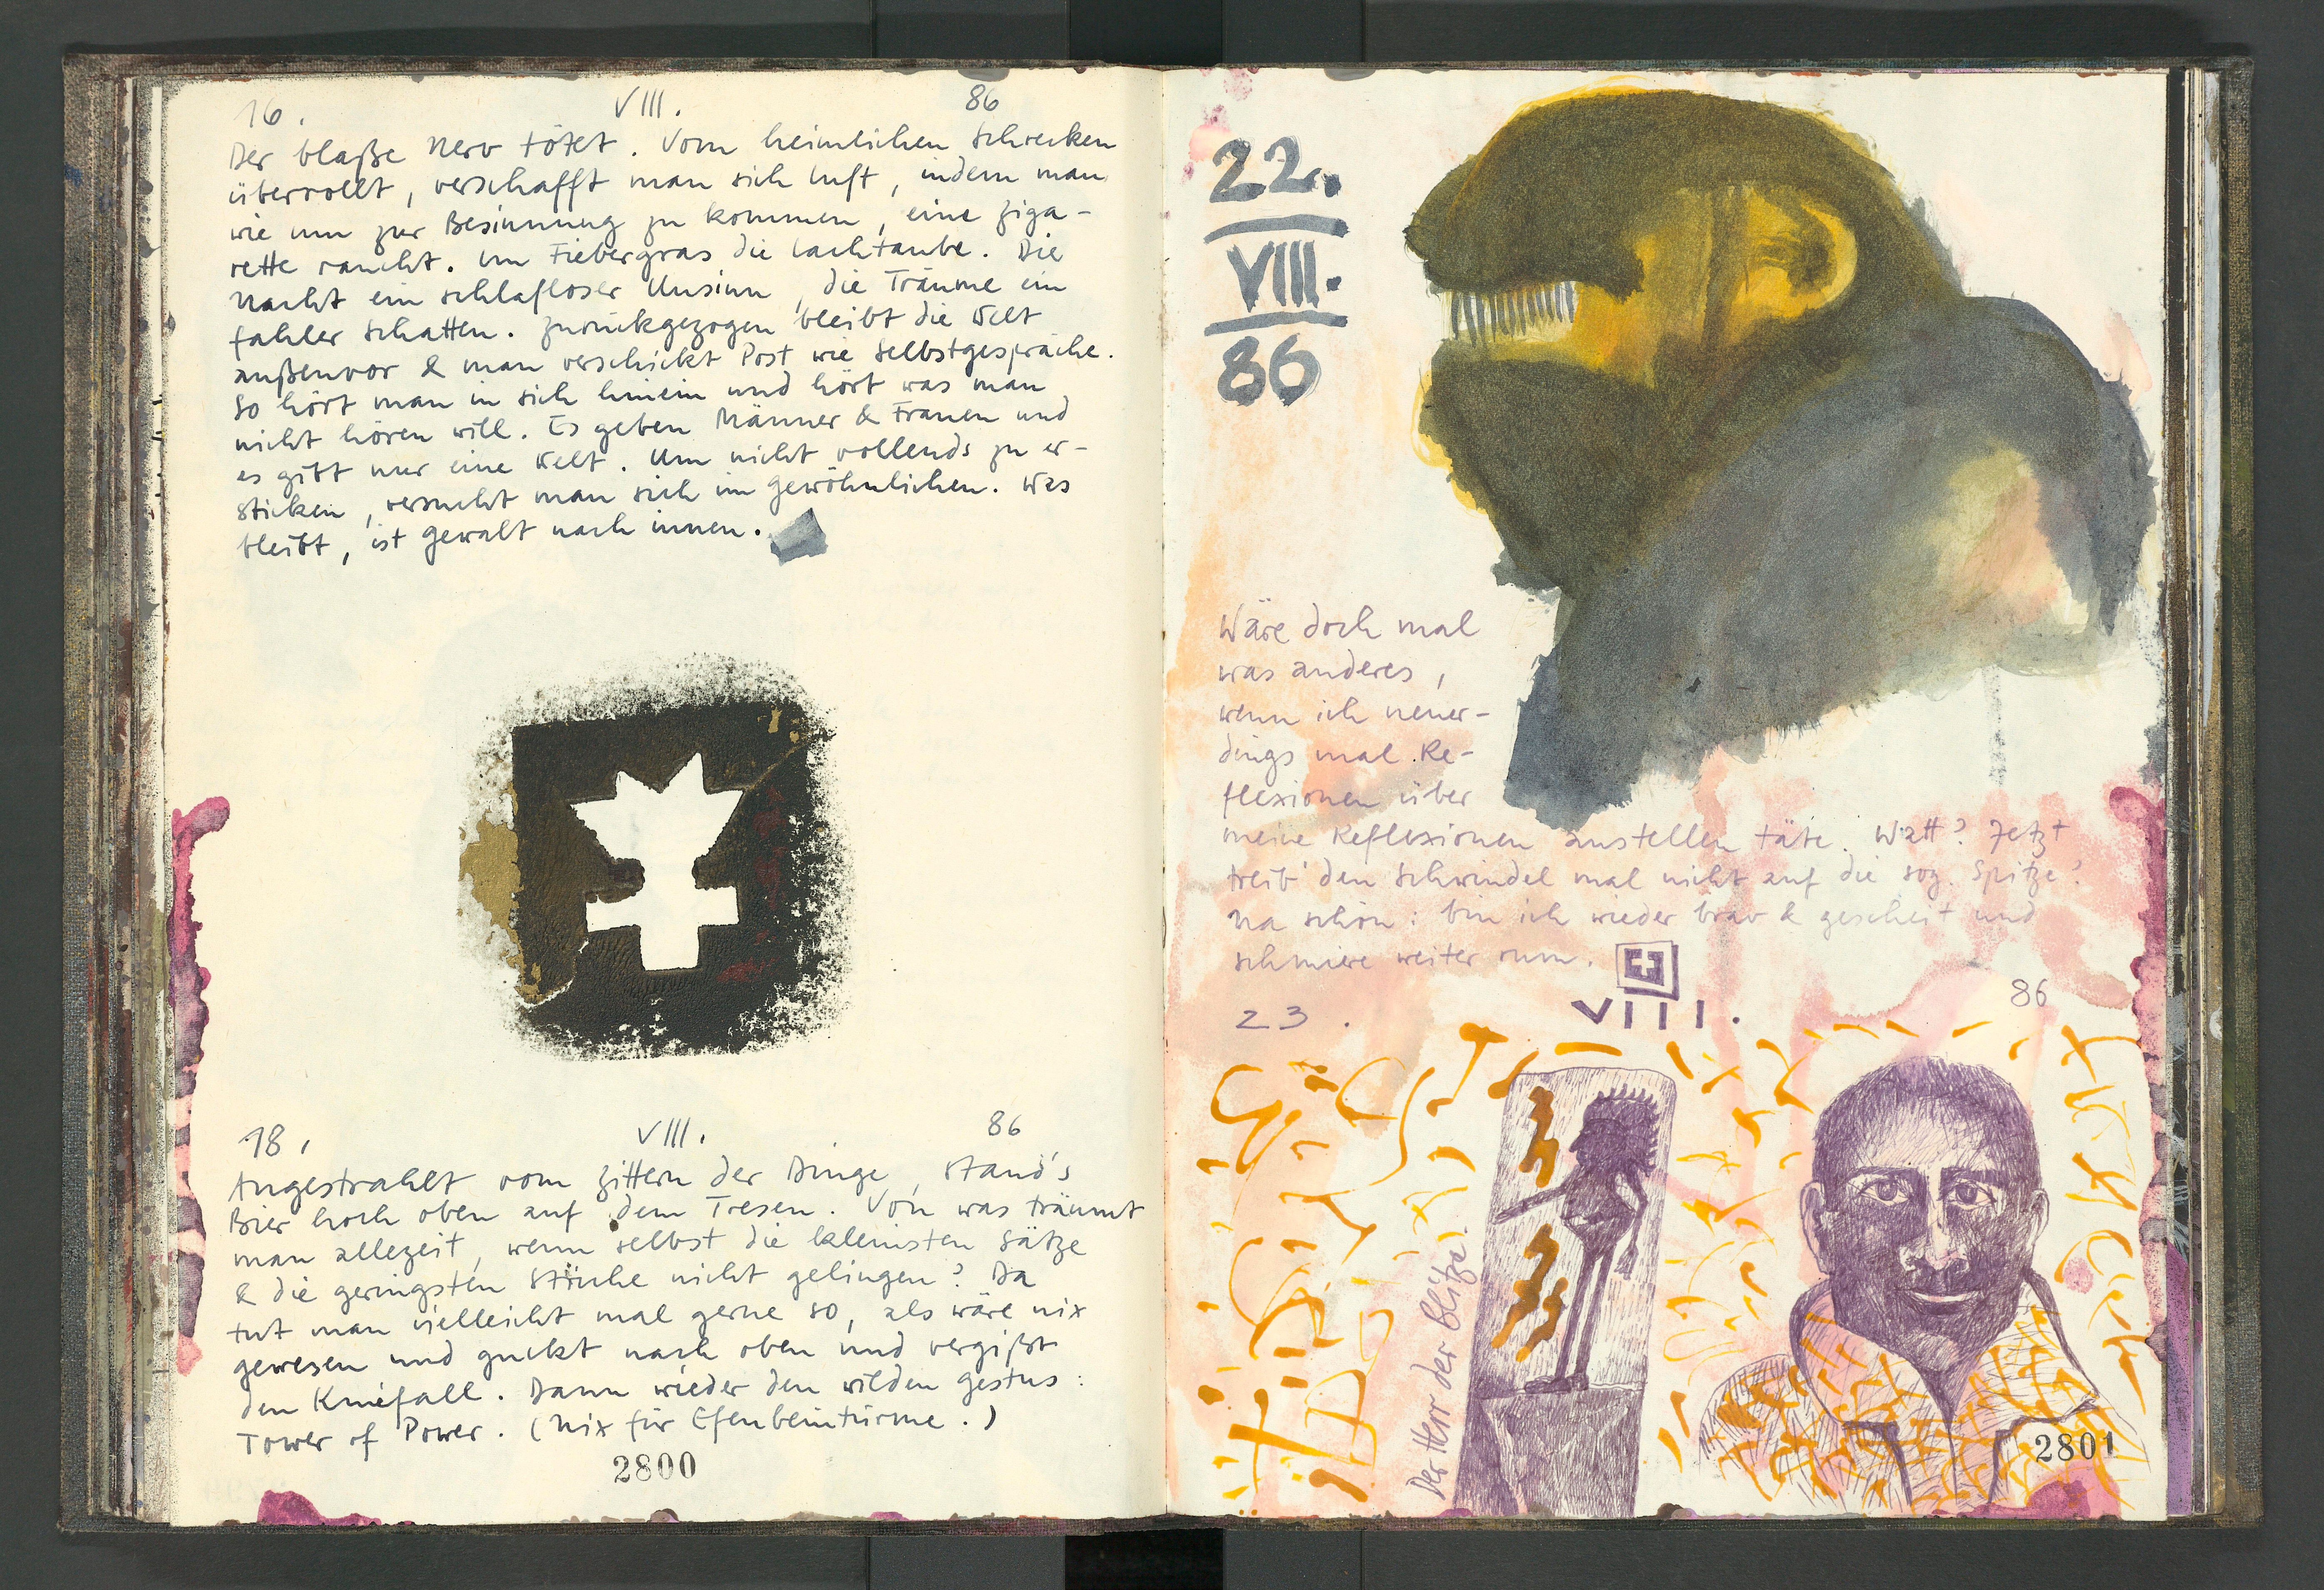 16. VIII. 86
Der blaße Nerv tötet. Vom heimlichen Schrecken
überrollt, verschafft man sich Luft, indem man
wie um zur Besinnung zu kommen, eine Ziga-
rette raucht. Im Fiebergras die Lachtaube. Die
Nacht ein schlafloser Unsinn, die Träume ein
fahler Schatten. Zurückgezogen bleibt die Welt
außenvor & man verschickt Post wie Selbstgespräche.
So hört man in sich hinein und hört was man
nicht hören will. Es geben Männer & Frauen und
es gibt nur eine Welt. Um nicht vollends zu er-
sticken, versucht man sich im Gewöhnlichen. Was
bleibt, ist Gewalt nach innen.
18. VIII. 86
Angestrahlt vom Zittern der Dinge, stand's
Bier hoch oben auf dem Tresen. Von was träumt
man allezeit, wenn selbst die kleinsten Sätze
& die geringsten Striche nicht gelingen? Da
tut man vielleicht mal gerne so, als wäre nix
gewesen und guckt nach oben und vergißt
den Kniefall. Dann wieder den wilden Gestus:
Tower of Power. (Nix für Elfenbeintürme.)
2800
22.
VIII.
86
Wäre doch mal
was anderes,
wenn ich neuer-
dings mal Re-
flexionen über
meine Reflexionen anstellen täte. Watt? Jetzt
treib' den Schwindel mal nicht auf die sog. Spitze!
Na schön: bin ich wieder brav & gescheit und
schmiere weiter rum.
23. VIII. 86
Der Herr der Blitze.
2801